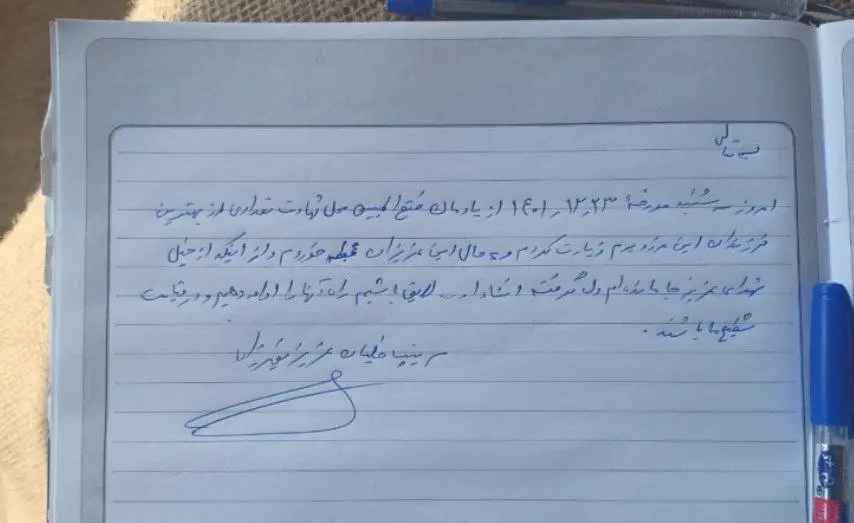 بسمه تعالی
امروز سه شنبه مورخهٔ ۱۴۰۱/۱۲/۲۳ از یادمان فتح المبین محل شهادت تعدادی از بهترین
فرزندان این مرز و بوم زیارت کردم و به حال این عزیزان غبطه خوردم و از اینکه از خیل
شهدای عزیز جا مانده‌ام دل گرفته انشاءا... لایق باشیم راه آنها را ادامه دهیم و در قیامت
شفیع ما باشند.
سرتیپ خلبان عزیز نصیرزاده